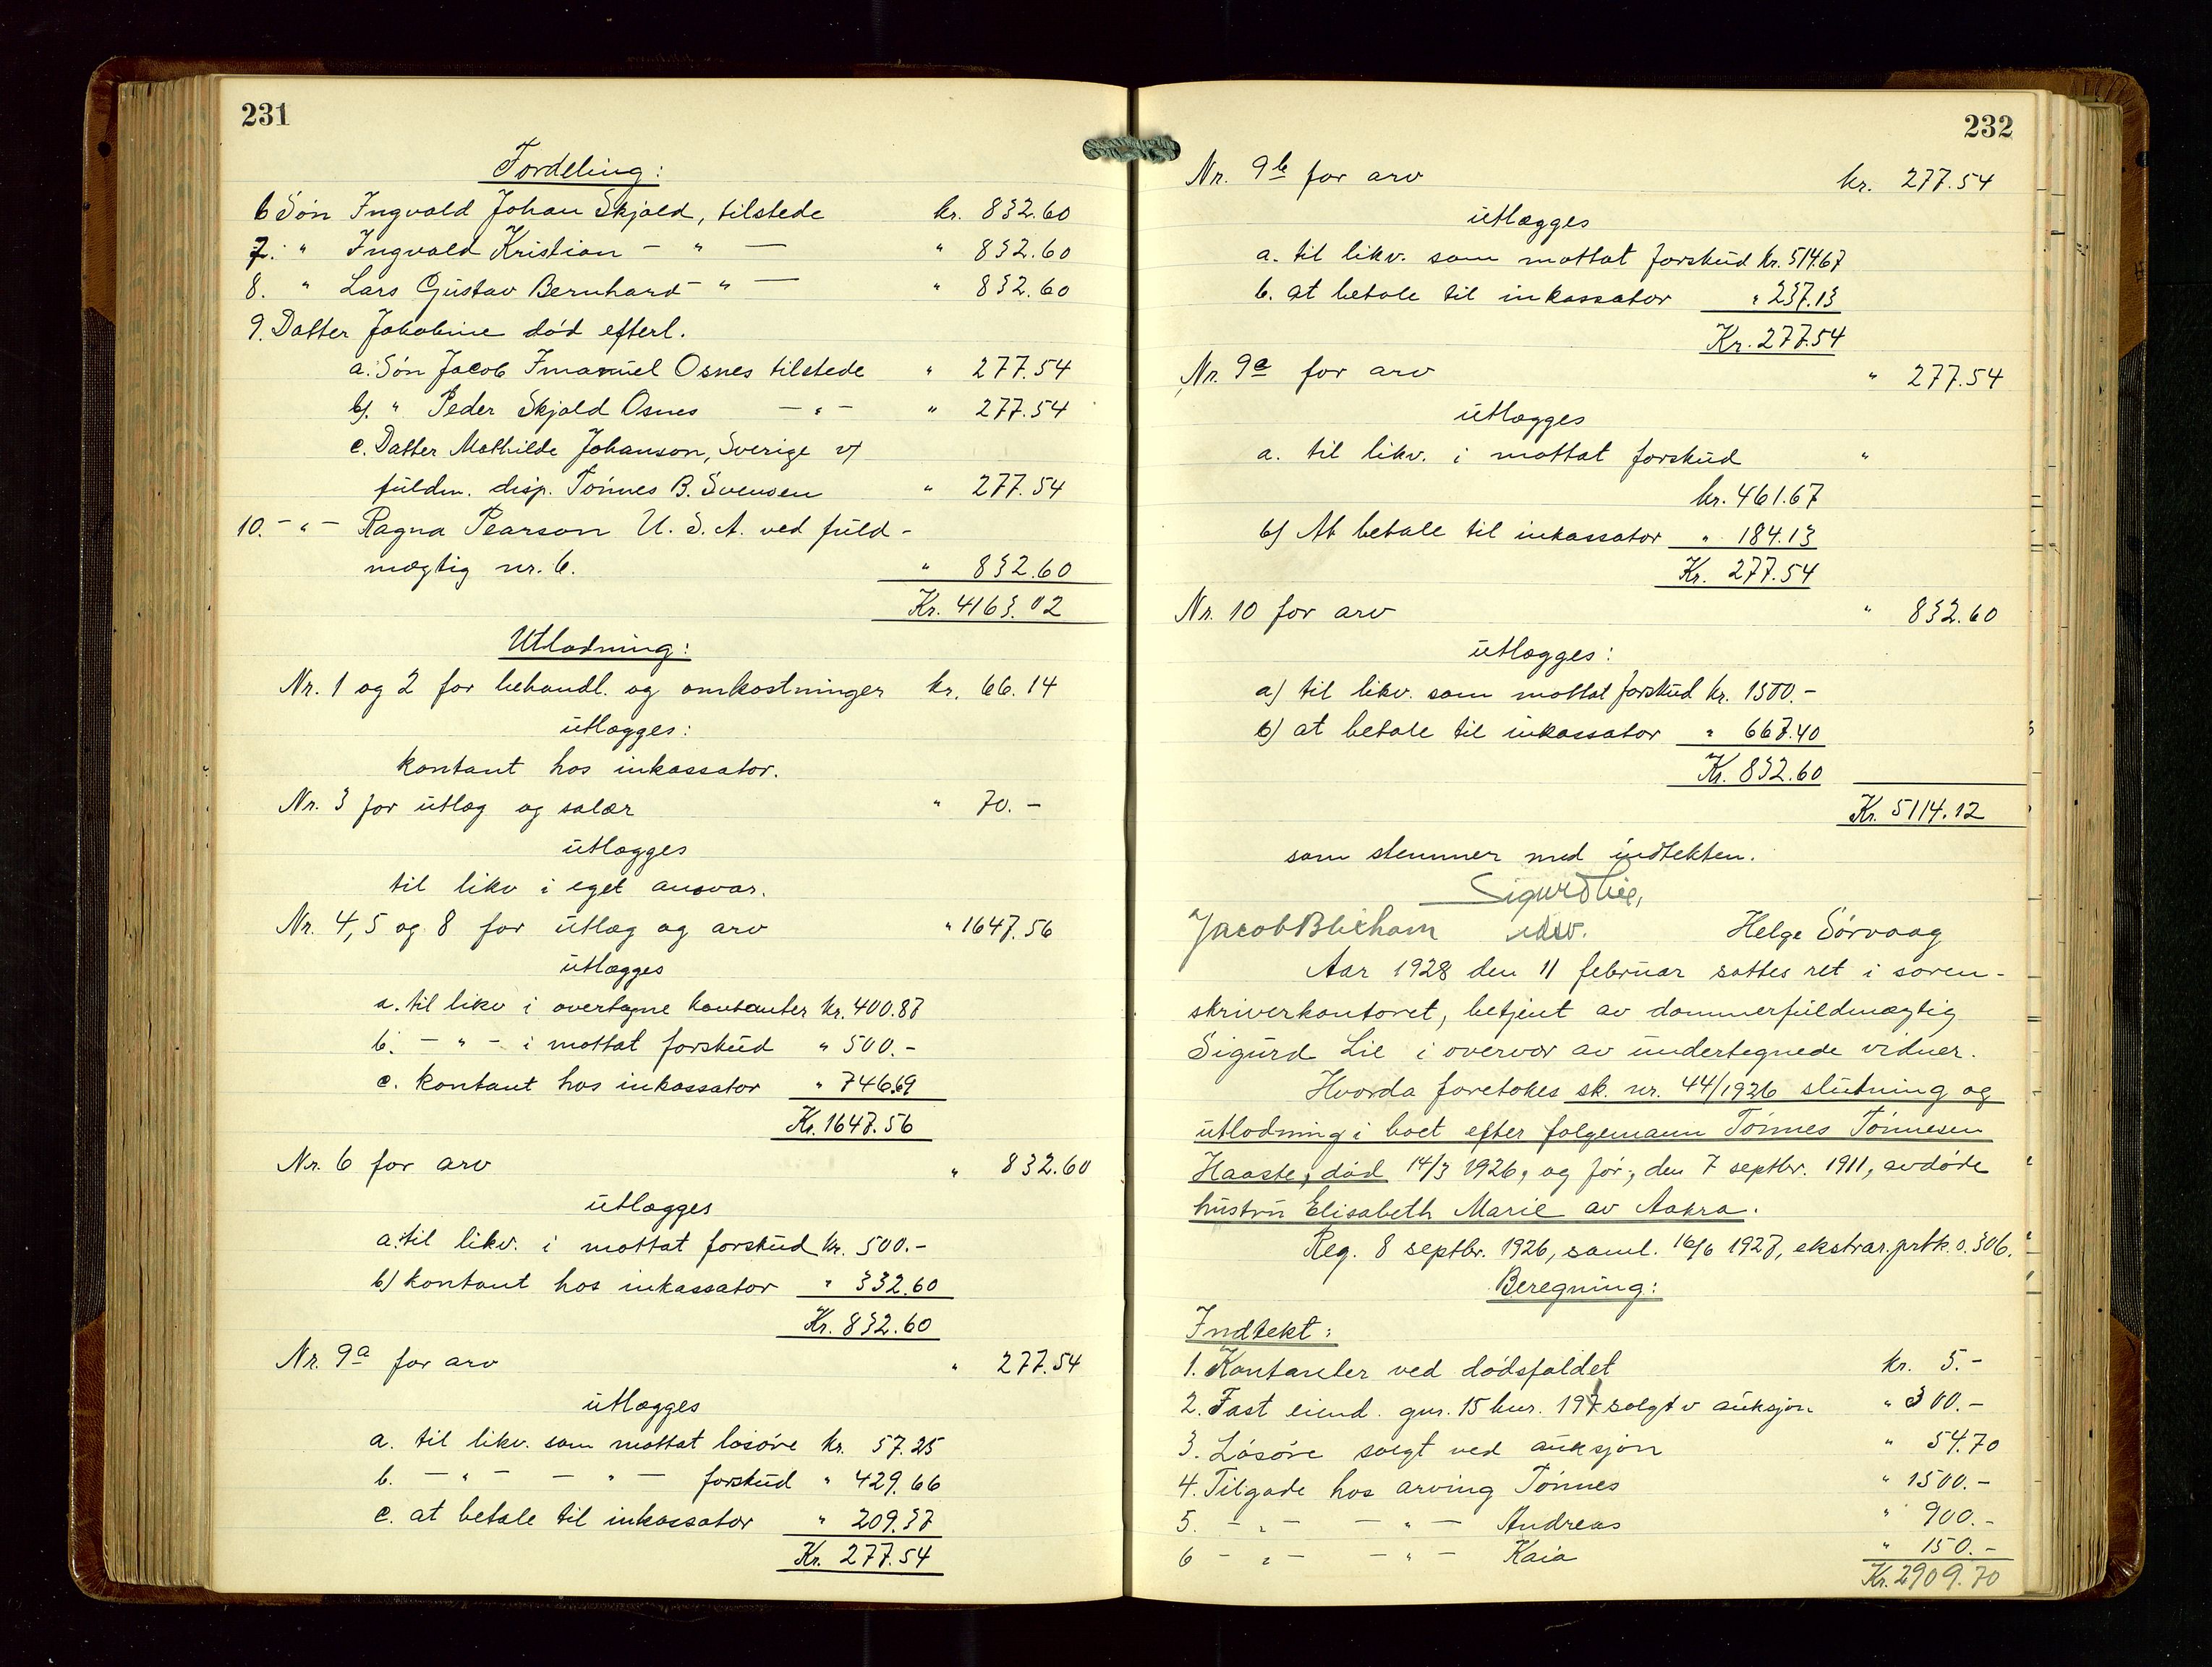 231
Fordeling:
6 Søn Ingvald Johan Skjold, tilstede kr. 832.60
7. " Ingvald Kristian - " - " 832.60
8. " Lars Gustav Bernhard - " - " 832.60
9. Datter Jakobine død efterl.
a. Søn Jacob Imanuel Osnes tilstede " 277.54
b). " Peder Skjold Osnes - " - " 277.54
c. Datter Mathilde Johanson, Sverige v/
fuldm. disp. Tønnes B. Svensen " 277.54
10. - " - Ragna Pearson U. S. A. ved fuld-
mægtig nr. 6. " 832.60
Kr. 4163.02
Utlodning:
Nr. 1 og 2 for behandl. og omkostninger kr. 66.14
utlægges:
kontant hos inkassator.
Nr. 3 for utlæg og salær " 70.-
utlægges
til likv i eget ansvar.
Nr. 4, 5 og 8 for utlæg og arv " 1647.56
utlægges
a. til likv i overtagne kontanter kr. 400.87
b. - " - i mottat forskud " 500.-
c. kontant hos inkassator " 746.69
Kr. 1647.56
Nr. 6 for arv " 832.60
utlægges
a. til likv. i mottat forskud kr. 500.-
b) kontant hos inkassator " 332.60
Kr. 832.60
Nr. 9a for arv " 277.54
utlægges
a. til likv. som mottat løsøre kr. 57.25
b. - " - - " - forskud " 429.66
c. at betale til inkassator " 209.37
Kr. 277.54
232
Nr. 9b for arv kr. 277.54
utlægges
a. til likv. som mottat forskud kr. 514.67
b. at betale til inkassator " 237.13
Kr. 277.54
Nr. 9c for arv " 277.54
utlægges
a. til likv. i mottat forskud "
kr. 461.67
b) At betale til inkassator " 184.13
Kr. 277.54
Nr. 10 for arv " 832.60
utlægges:
a) til likv. som mottat forskud kr. 1500.-
b) at betale til inkassator " 667.40
Kr. 832.60
Kr. 5114.12
som stemmer med indtekten.
Sigurd Lie,
Jacob Blixham Helge Sørvaag
Aar 1928 den 11 februar sattes ret i soren-
skriverkontoret, betjent av dommerfuldmægtig
Sigurd Lie i overvær av undertegnede vidner.
Hvorda foretokes sk. nr. 44/1926 slutning og
utlodning i boet efter følgemann Tønnes Tønnesen
Haaste, død 14/3 1926, og før, den 7 septbr. 1911, avdøde
hustru Elisabeth Marie av Aakra.
Reg. 8 septbr. 1926, saml. 16/6 1927, ekstrar. prtk. s. 306.
Beregning:
Indtekt:
1. Kontanter ved dødsfaldet kr. 5.-
2. Fast eiend. gnr. 15 bnr. 197 solgt v auksjon " 300.-
3. Løsøre solgt ved auksjon " 54.70
4. Tilgode hos arving Tønnes " 1500.-
5. - " - - " - Andreas " 900.-
6 - " - - " - Kaia " 150.-
Kr. 2909.70